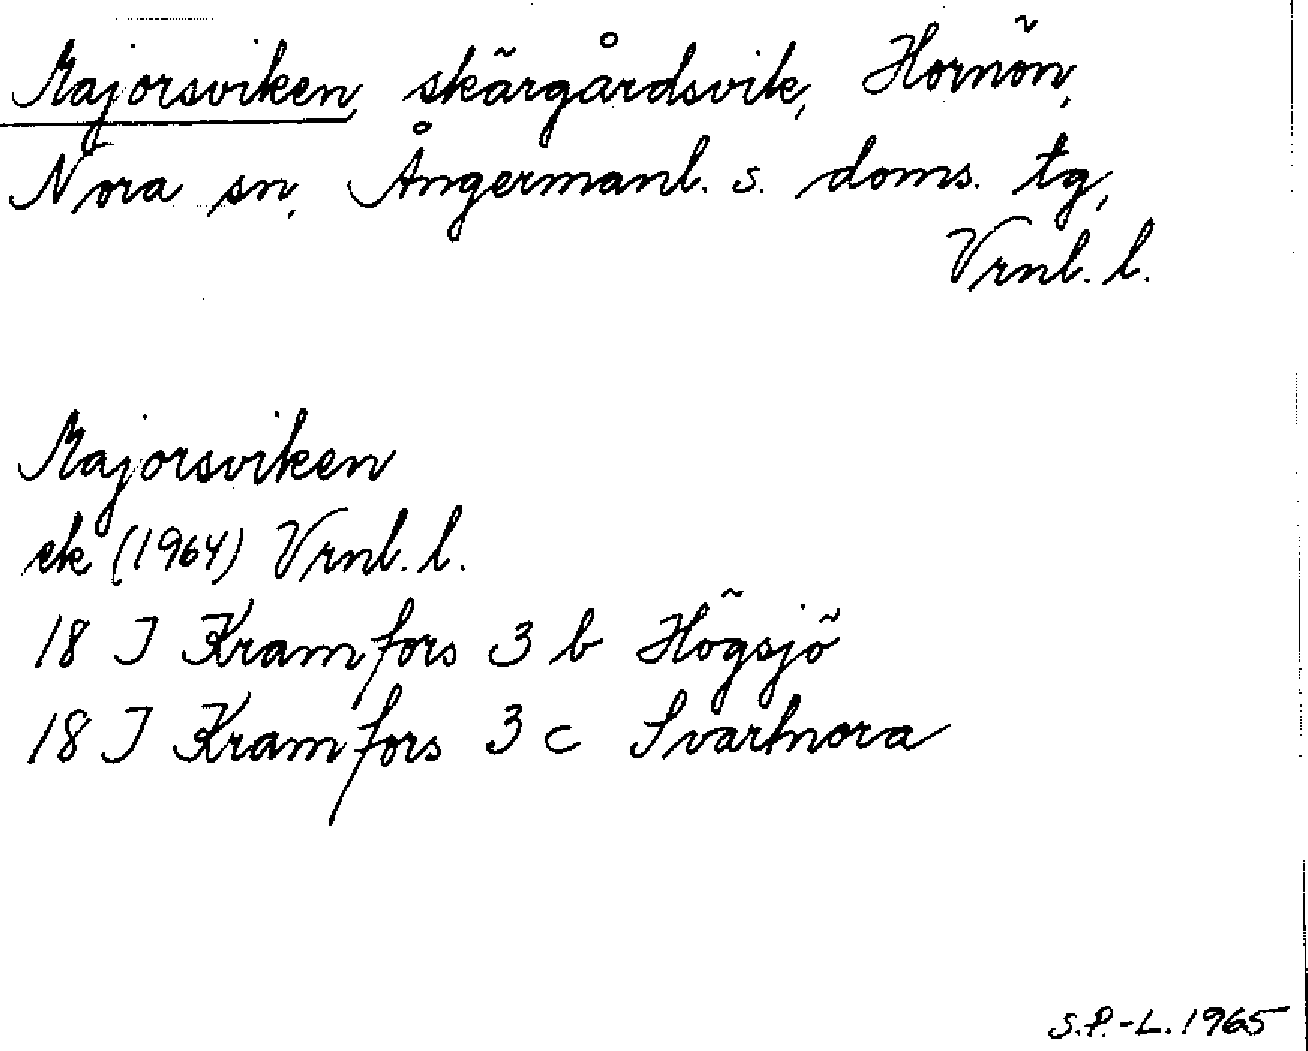 Majorsviken, skärgårdsvik, Hornön,
Nora sn, Ångermanl. s. doms. tg,
Vrnl. l.
Majorsviken
ek (1964) Vrnl. l.
18 J Kramfors 3 b Högsjö
18 J Kramfors 3 c Svartnora
S.P.-L. 1965